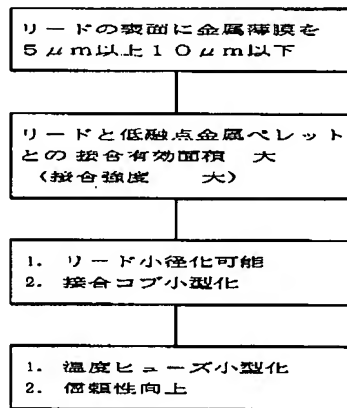 リードの表面に金属薄膜を
5μm以上10μm以下
リードと低融点金属ペレット
との接合有効面積 大
(接合強度 大)
1. リード小径化可能
2. 接合コブ小型化
1. 温度ヒューズ小型化
2. 信頼性向上